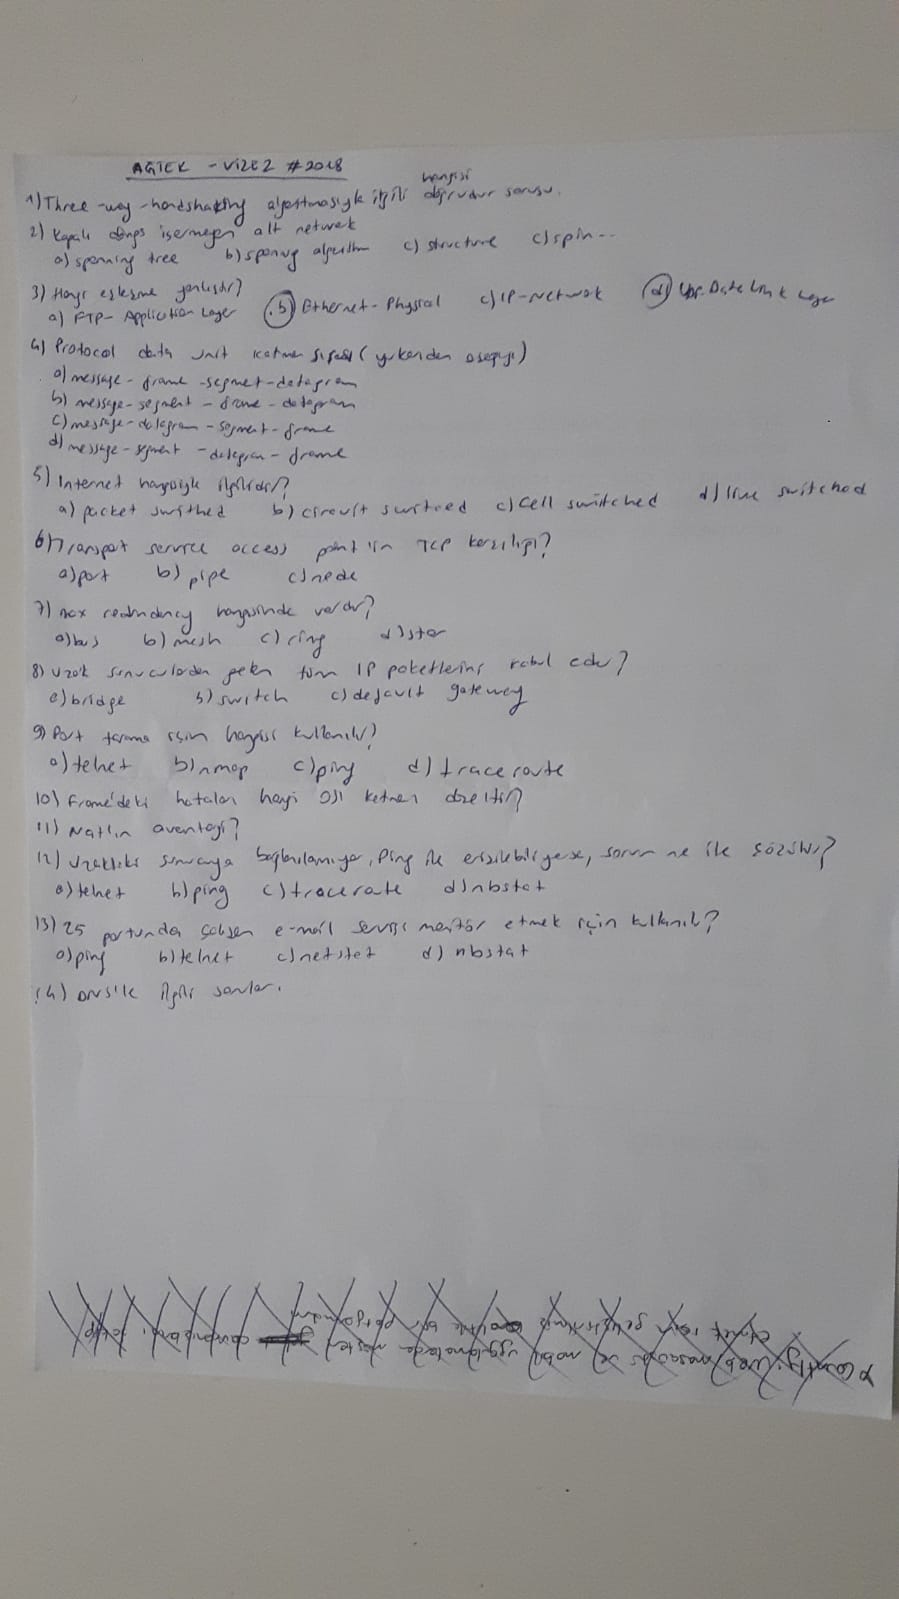 AGTEK - VİZE 2 #2018
1) Three-way-handshaking algoritmasıyla ilgili hangisi doğrudur sorusu.
2) Kapalı döngü içermeyen alt network
a) spanning tree b) spanning algorithm c) structure c) spin--
3) Hangi eşleşme yanlıştır?
a) FTP- Application Layer b) Ethernet- Physical c) IP-Network d) Data Link Layer
4) Protocol data unit katman sırası (yukarıdan aşağıya)
a) message- frame -segmet-datagram
b) message-segment - frame - datagram
c) message-datagram - segment-frame
d) message-segment -datagram- frame
5) Internet hangisiyle ilgilidir?
a) packet swithed b) circuit c) cell switched d) line switched
6) Transport service access point'in TCP karşılığı?
a) port b) pipe c) node
7) max redundancy hangisinde vardır?
a) bus b) mesh c) ring d) star
8) Uzak sunuculardan gelen tüm IP paketlerini kabul eder?
a) bridge b) switch c) default gateway
9) Port tarama için hangisi kullanılır?
a) telnet b) nmap c) ping d) traceroute
10) Frame'deki hataları hangi OSI katmanı düzeltir?
11) Nat'ın avantajı?
12) Uzaktaki sunucuya bağlanılamıyor, Ping ile erişilebiliyorsa, sorun ne ile çözülür?
a) telnet b) ping c) tracerate d) nbstat
13) 25 portundan çalışan e-mail servisi monitör etmek için kullanılır?
a) ping b) telnet c) netstat d) nbstat
14) DNS'le ilgili sorular.